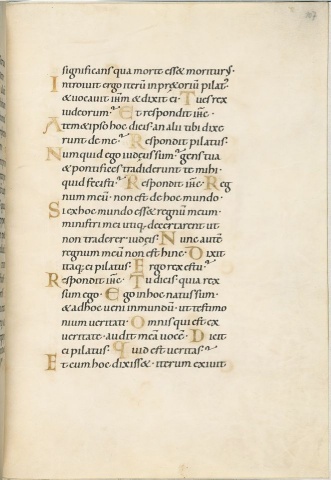 significans qua morte esset moriturus.
Introivit ergo iterū in pretoriū pilat᷒
& vocavit ihm̄ & dixit ei. Tu es rex
iudeorum. Et respondit ihc̄.
A temetipso hoc dicis. an alii tibi dixe
runt de me. Respondit pilatus.
Numquid ego iudęus sum. gens tua
& pontifices tradiderunt te mihi.
quid fecisti. Respondit ihc̄. Reg
num meū non est de hoc mundo.
Si ex hoc mundo esset regnū meum.
ministri mei utiq; decertarent ut
non traderer iudęis. Nunc autē
regnum meū non est hinc. Dixit
itaq; ei pilatus. Ergo rex es tu.
Respondit ihc̄. Tu dicis. quia rex
sum ego. Ego in hoc natus sum.
& ad hoc veni in mundū. ut testimo
nium veritati. Omnis qui est ex
veritate. audit meā vocē. Dicit
ei pilatus. Quid est veritas.
Et cum hoc dixisset. iterum exivit